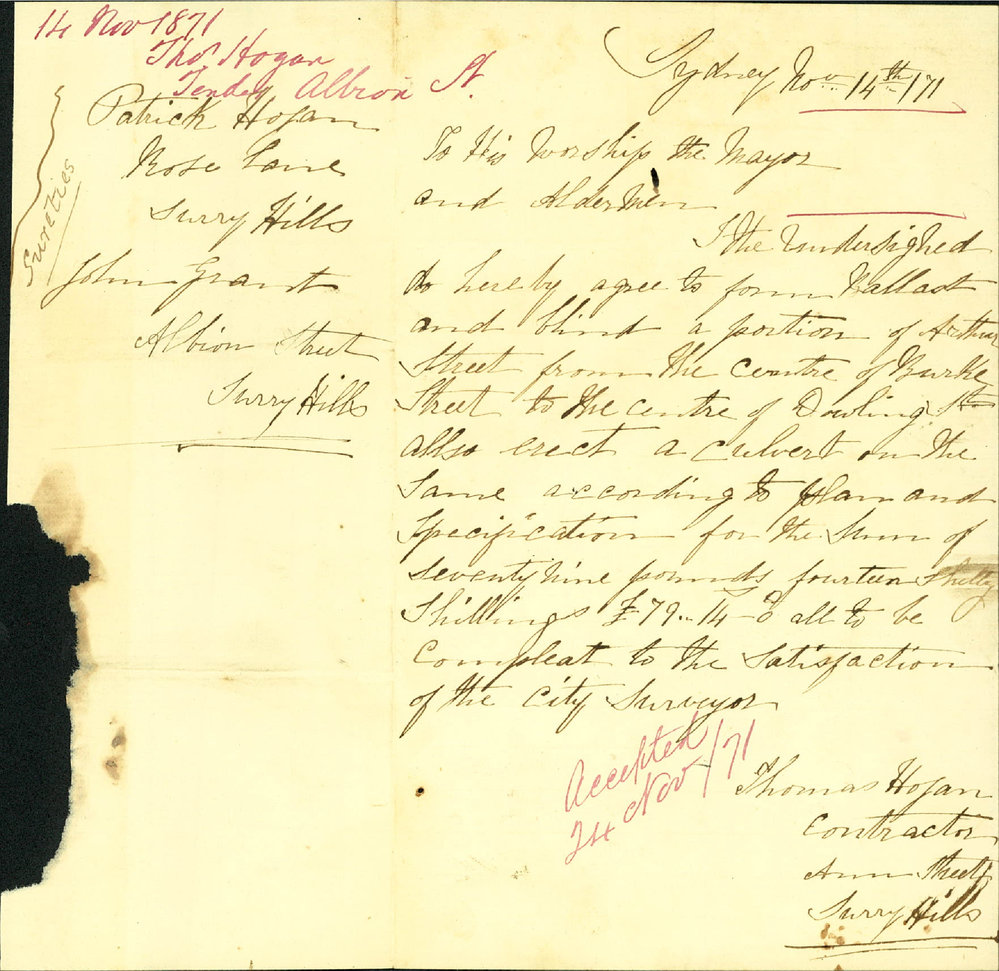 14 Nov 1871
Thos Hogan
Tender Albion St.
Sureties
Patrick Hogan
Rose Lane
Surry Hills
John Grant
Albion Street
Surry Hills
Sydney Nov 14th /71
To His Worship the Mayor
and Aldermen
I the Undersigned
do hereby agree to form Ballast
and blind a portion of Arthur
Street from the centre of Burke
Street to the centre of Dowling St
allso erect a culvert on the
Same according to plan and
Specification for the Sum of
Seventy Nine pounds fourteen
Shillings £79..14-0 all to be
Compleat to the Satisfaction
of the City Surveyor
Accepted
24 Nov /71
Thomas Hogan
Contractor
Ann Street
Surry Hills